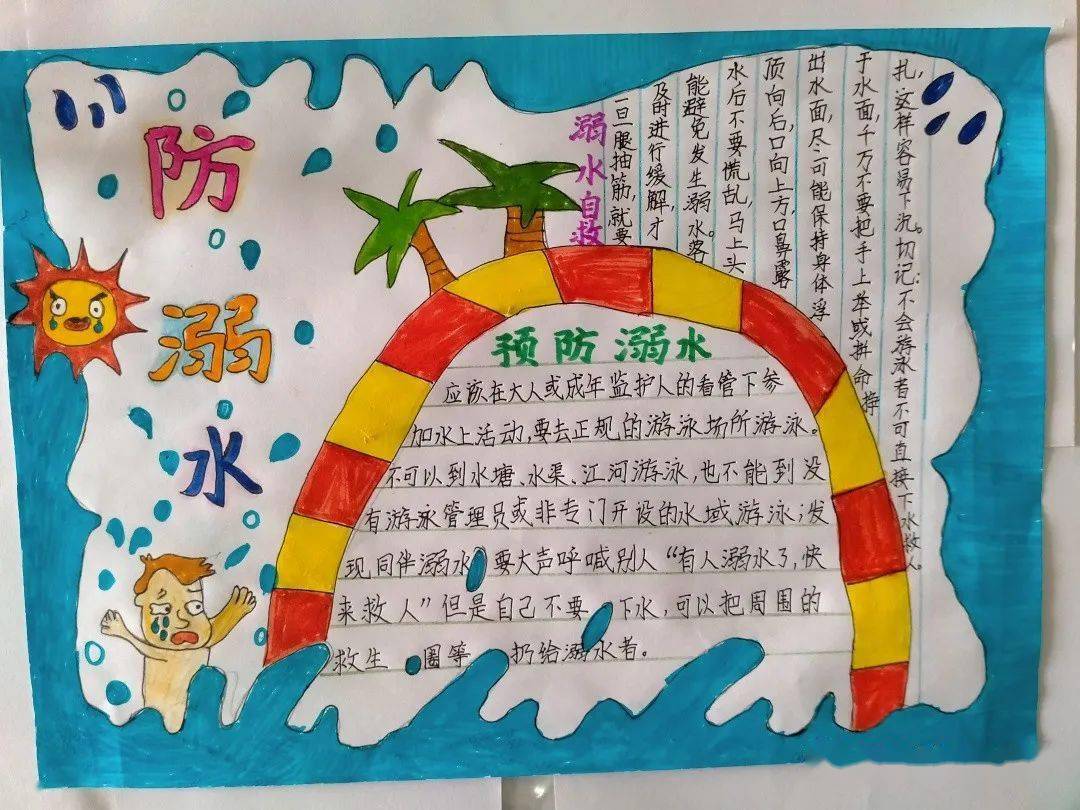 防
溺
水
溺水自救
一旦腿抽筋,就要
及时进行缓解,才
能避免发生溺水。落
水后不要慌乱,马上头
顶向后,口向上方,口鼻露
出水面,尽可能保持身体浮
于水面,千万不要把手上举或拼命挣
扎,这样容易下沉。切记:不会游泳者不可直接下水救人。
预防溺水
应该在大人或成年监护人的看管下参
加水上活动,要去正规的游泳场所游泳。
不可以到水塘、水渠、江河游泳,也不能到没
有游泳管理员或非专门开设的水域游泳;发
现同伴溺水 要大声呼喊别人“有人溺水了,快
来救人”但是自己不要 下水,可以把周围的
救生 圈等 扔给溺水者。